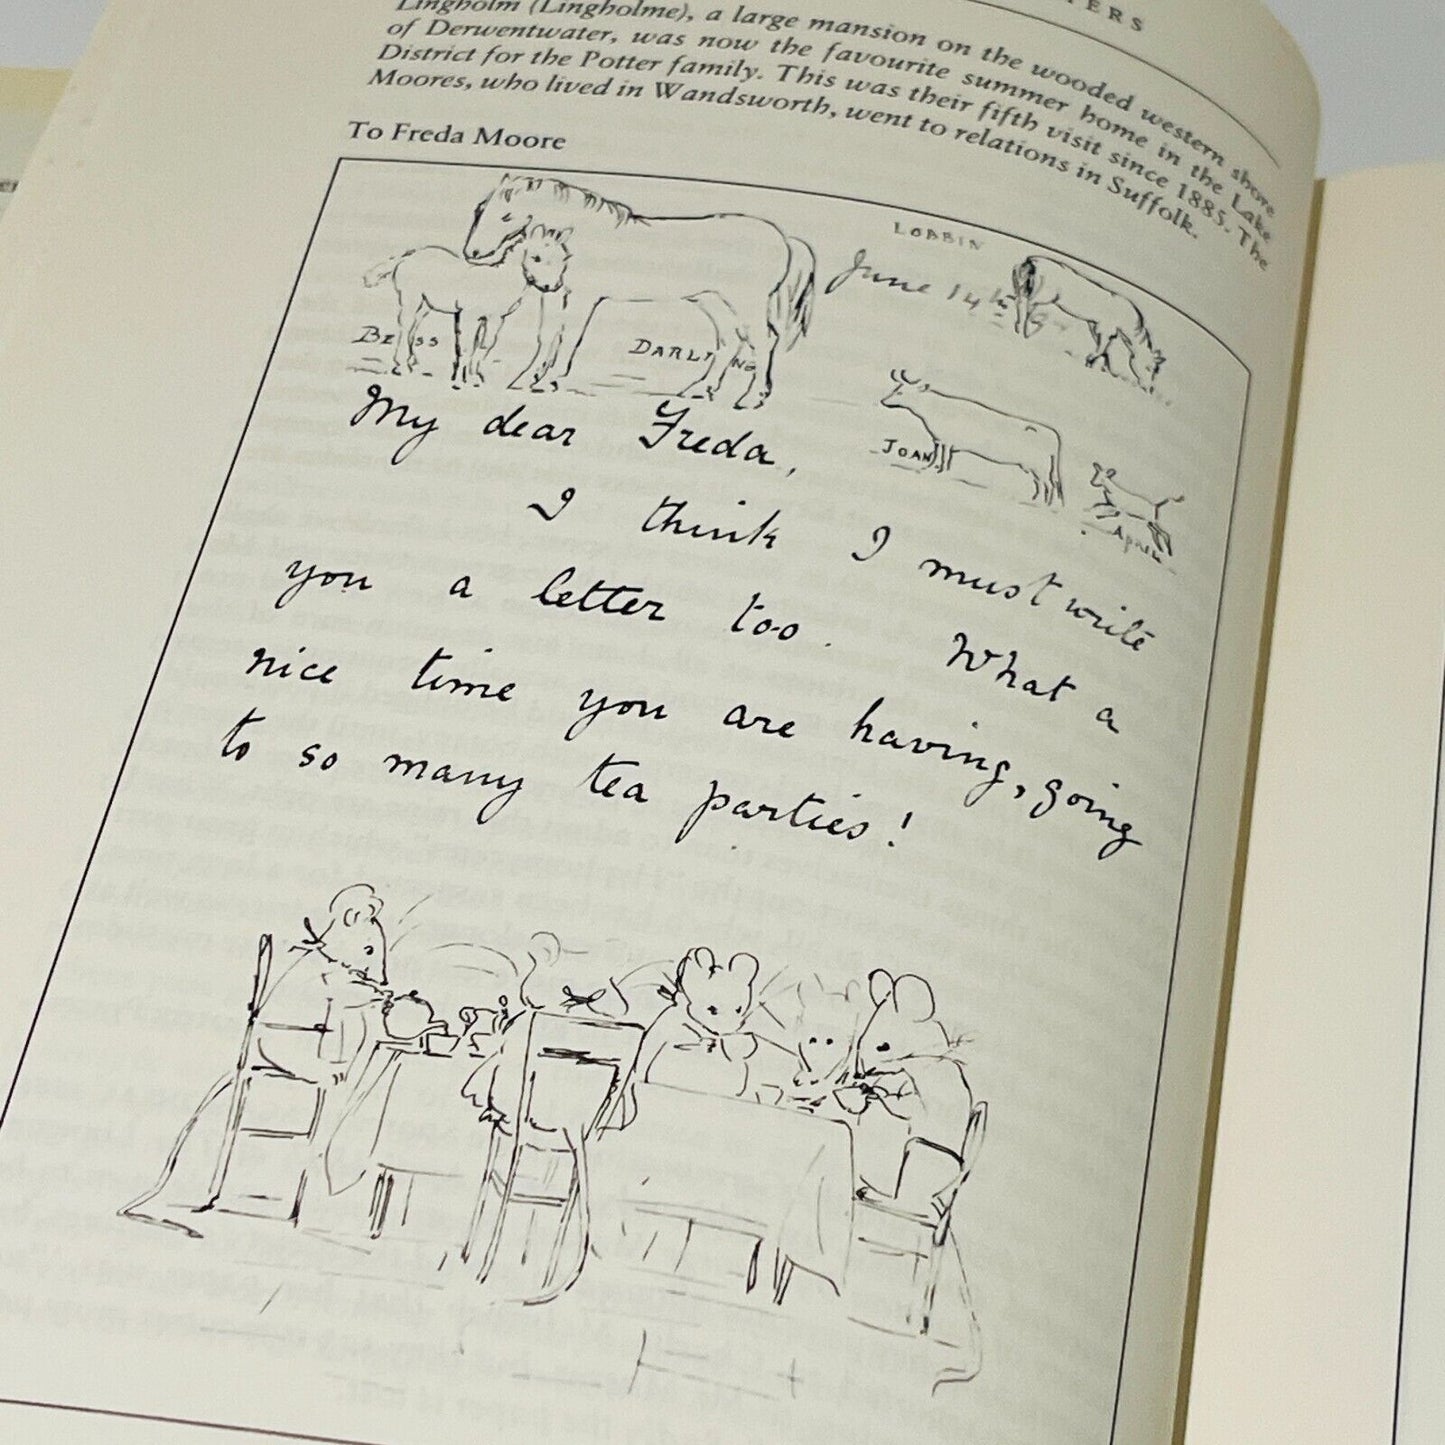 TERS
Lingholm (Lingholme), a large mansion on the wooded western shore
of Derwentwater, was now the favourite summer home in the Lake
District for the Potter family. This was their fifth visit since 1885. The
Moores, who lived in Wandsworth, went to relations in Suffolk.
To Freda Moore
LOBBIN
June 14th
BESS
DARLING
JOAN
My dear Freda,
I think I must write
you a letter too. What a
nice time you are having, going
to so many tea parties!